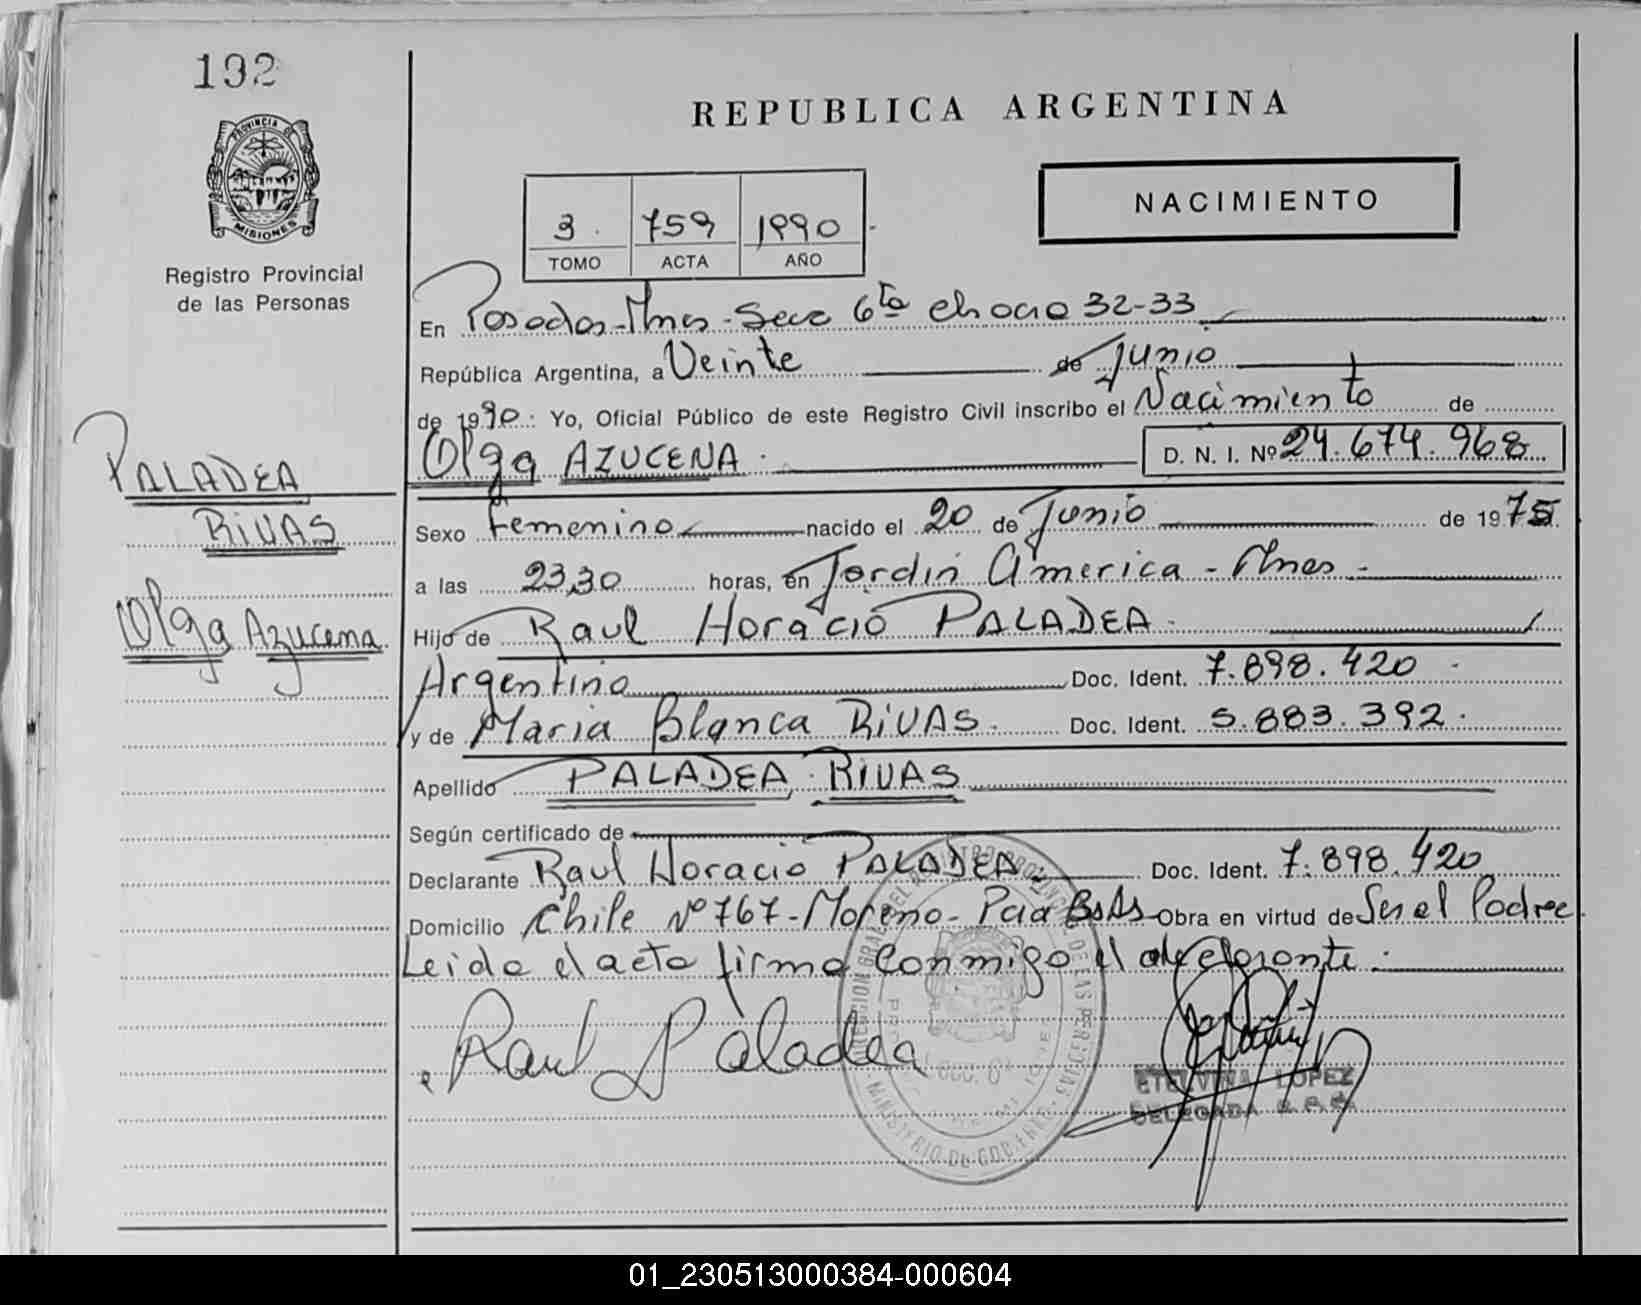 192
REPUBLICA ARGENTINA
PROVINCIA DE
MISIONES
NACIMIENTO
3. 759 1990
TOMO ACTA AÑO
Registro Provincial
de las Personas
En Posadas-Mnes-Secc 6ta chacra 32-33
República Argentina, a Veinte de Junio
de 1990: Yo, Oficial Público de este Registro Civil inscribo el Nacimiento de
Olga AZUCENA. D. N. I. Nº 24.674.968
PALADEA
RIVAS
Olga Azucena
Sexo Femenino nacido el 20 de Junio de 1975
a las 23,30 horas, en Jardin America - Mnes -
Hijo de Raul Horacio PALADEA.
Argentino Doc. Ident. 7.898.420
y de Maria Blanca RIVAS. Doc. Ident. 5.883.392.
Apellido PALADEA RIVAS
Según certificado de
Declarante Raul Horacio PALADEA Doc. Ident. 7.898.420
Domicilio Chile Nº 767-Moreno-Pcia BsAs Obra en virtud de Ser el Padre
Leida el acta firma conmigo el declarante.
Raul Paladea
ETELVINA LOPEZ
DELEGADA R.P.
MINISTERIO DE GOBIERNO
01_230513000384-000604